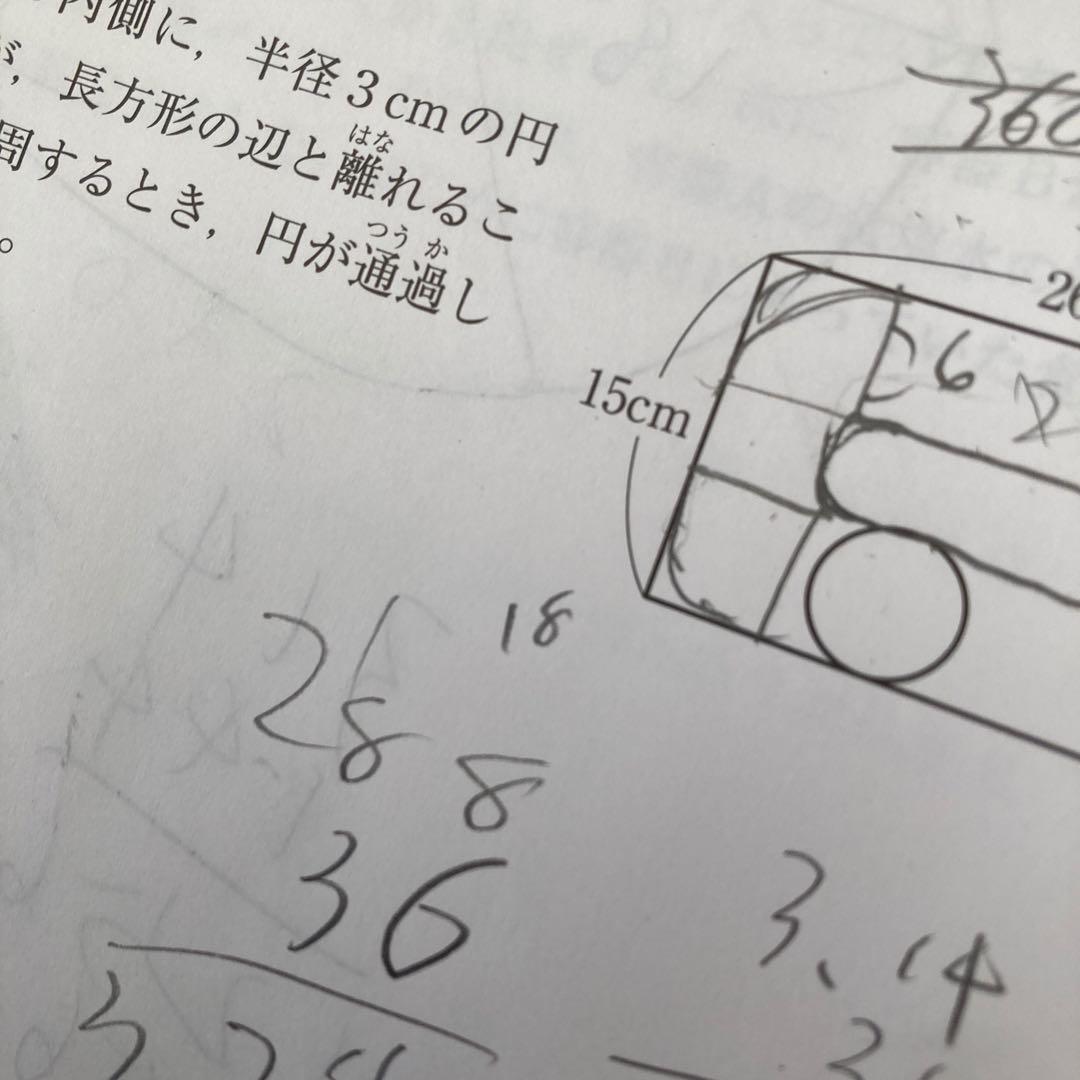 内側に，半径3cmの円
が，長方形の辺と離れるこ
はな
周するとき，円が通過し
つうか
。
360
26
15cm
6
28
18
8
36
3.14